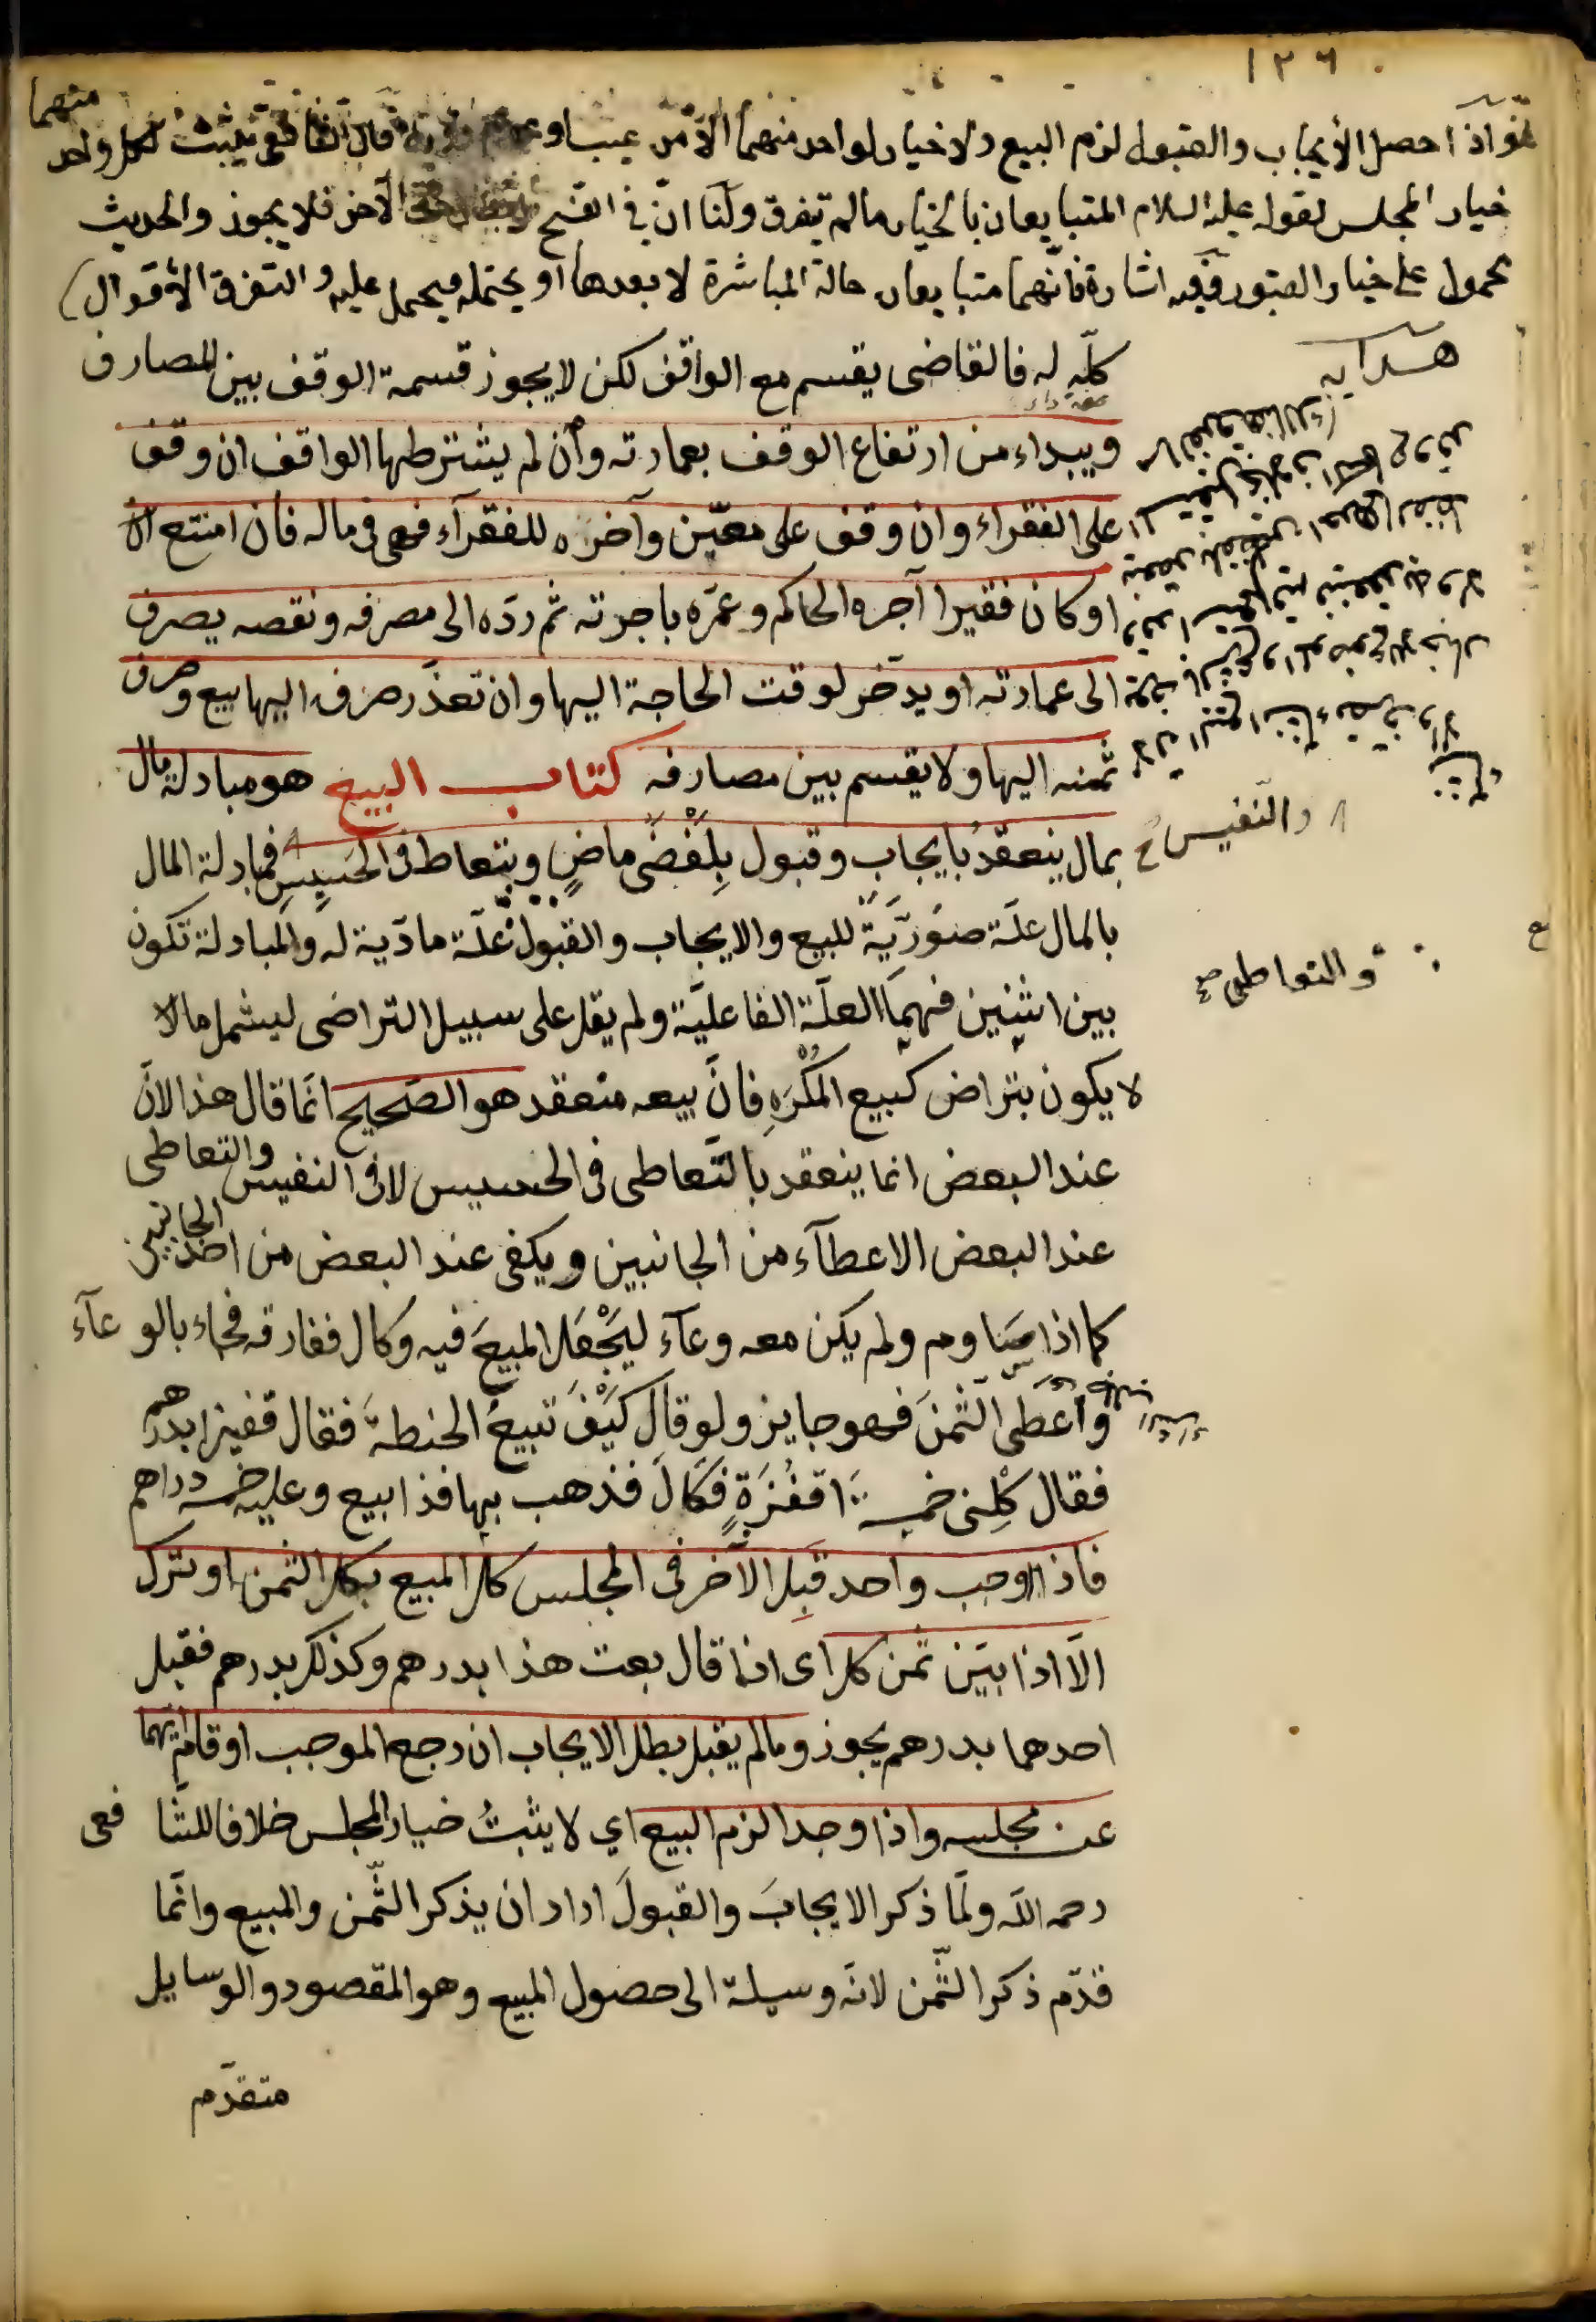 ١٢٦
واذا حصل الأيجاب والقبول لزم البيع ولا خيار لواحد منهما الا من عيب او عدم رؤية وقال الشافعي يثبت لكل واحد منهما
خيار المجلس لقوله عليه السلام المتبايعان بالخيار مالم يتفرق ولنا انّ في الفسخ ابطال حق الآخر فلا يجوز والحديث
محمول على خيار القبور ففيه اشارة فانّهما متبايعان حالة المباشرة لا بعدها او يحتمله فيحمل عليه والتفرق الأقوال
هدايه
كلّه له فالقاضى يقسم مع الواقف لكن لا يجوز قسمة الوقف بين المصارف
ويبداء من ارتفاع الوقف بعمارته وأن لم يشترطها الواقف ان وقف
على الفقراء وان وقف على معيّن وآخره للفقرآء فهى فى ماله فان امتنع
او كان فقيرا آجره الحاكم وعمّره باجرته ثم ردّه الى مصرفه ونقصه يصرف
الى عمارته او يدّخر لوقت الحاجة اليها وان تعذّر صرفه اليها بيع وصرف
ثمنه اليها ولا يقسم بين مصارفه كتاب البيع هو مبادلة مال
بمال ينعقدُ بايجاب وقبول بِلَفْضَىْ ماضٍ وبتعاط فى الخسيسِ فمبادلة المال
والنّفيس صح
بالمال علّة صوُرّيَةٌ للبيع والايجاب والقبول علّة مادّية له والمبادلة تكون
والتعاطى صح
بين اثنين فهمَا العلّة الفاعليّة ولم يقل على سبيل التراضى ليشمل مالا
لا يكون بتراض كبيع المُكْرَهِ فانّ بيعه منعقد هو الصّحيح انّما قال هذا لانّ
عند البعض انما ينعقد بالتّعاطى فى الخسيس لا فى النفيس والتعاطى
عند البعض الاعطآء من الجانبين ويكفى عند البعض من احد الجانبين
كما اذا ساوم ولم يكن معه وعآء ليَجْعَلَ المبيعَ فيه وكال ففارقه فجاء بالوعآء
وأعطى الثّمنَ فهو جايز ولو قال كَيْفَ تبيعُ الحنطةَ فقال قفيزا بدرهم
فقال كِلْنى خمسةَ اقفُزَةٍ فكَالَ فذهب بها فذا بيع وعليه خمسه دراهم
فاذا اوجب واحد قبِل الآخر فى المجلس كل المبيع بكل الثمن او ترك
الاّ اذا بيّن ثمن كل اى اذا قال بعت هذا بدرهم وكذلك بدرهم فقبل
احدهما بدرهم يجوز ومالم يقبل بطل الايجاب ان رجع الموجب او قام ايّهما
عن مجلسه واذا وجدا لزم البيع اي لا يثبتُ خيار المجلس خلافا للشافعى
رحمه الله ولمّا ذكر الايجابَ والقبولَ اراد ان يذكر الثّمن والمبيع وانّما
قدّم ذكر الثّمن لانّه وسيلة الى حصول المبيع وهو المقصود والوسايل
متقدّم